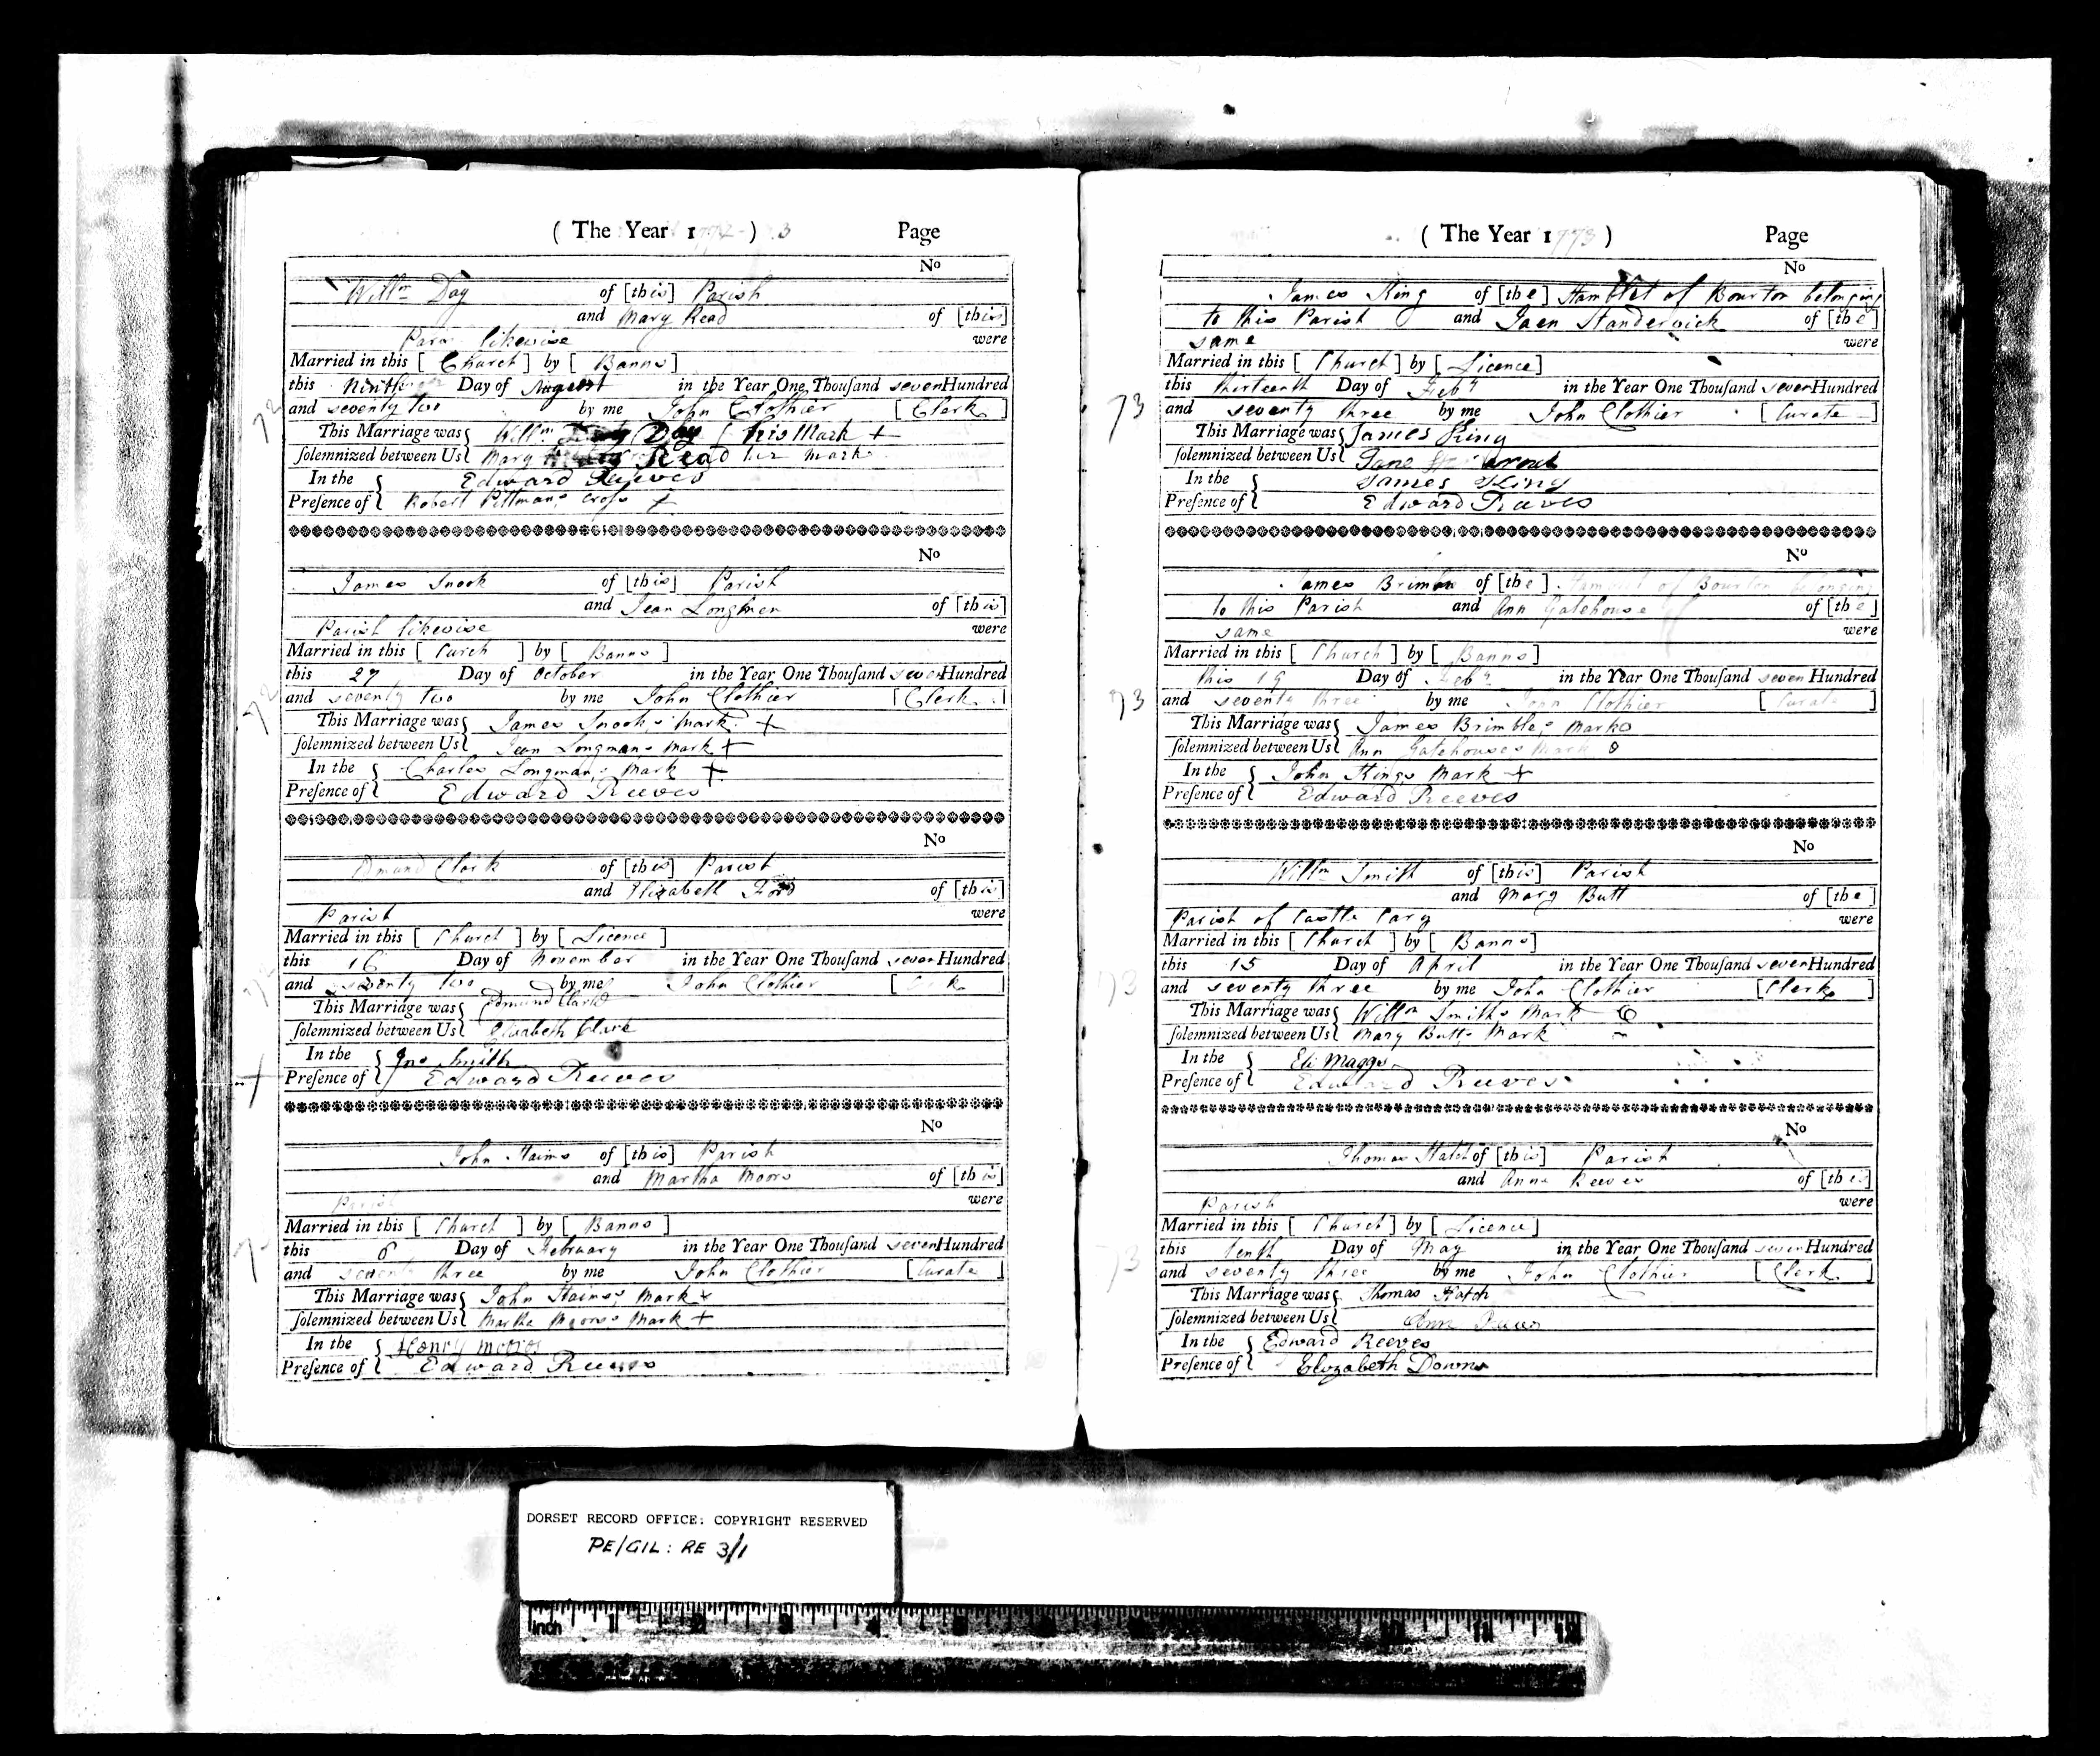 ( The Year 1772 ) 3 Page
No
Willm Day of [this] Parish
and Mary Read of [this]
Likewise were
Married in this [ Church ] by [ Banns ]
this Day of August in the Year One Thousand seven Hundred
and seventy two by me John Clothier [ Clerk ]
This Marriage was Willm Day his Mark +
solemnized between Us Mary Read her mark
In the Edward Reeves
Presence of Robert Pittmans Cross +
No
James Snook of [this] Parish
and Jean Longmen of [this]
Parish likewise were
Married in this [ Curch ] by [ Banns ]
this 27 Day of October in the Year One Thousand seven Hundred
and seventy two by me John Clothier [ Clerk ]
This Marriage was James Snooks Mark +
solemnized between Us Jean Longmans Mark +
In the Charles Longmans Mark +
Presence of Edward Reeves
No
Edmund Clark of [this] Parish
and Elizabeth Ford of [this]
Parish were
Married in this [ Church ] by [ Licence ]
this 16 Day of November in the Year One Thousand seven Hundred
and seventy two by me John Clothier [ Clerk ]
This Marriage was Edmund Clark
solemnized between Us Elizabeth Clark
In the Jno Smith
Presence of Edward Reeves
No
John Hains of [this] Parish
and Martha Moors of [this]
Parish were
Married in this [ Church ] by [ Banns ]
this 6 Day of February in the Year One Thousand seven Hundred
and seventy three by me John Clothier [ Curate ]
This Marriage was John Hains Mark x
solemnized between Us Martha Moors Mark +
In the Henry Moors
Presence of Edward Reeves
( The Year 1773 ) Page
No
James King of [the] Hamblet of Bourton belonging
to this Parish and Jaen Standerwick of [the]
same were
Married in this [ Church ] by [ Licence ]
this thirteenth Day of Feby in the Year One Thousand seven Hundred
73
and seventy three by me John Clothier [ Curate ]
This Marriage was James King
solemnized between Us Jane
In the James King
Presence of Edward Reeves
No
James Brimble of [the] Hamblet of Bourton belonging
to this Parish and Ann Gatehouse of [the]
same were
Married in this [ Church ] by [ Banns ]
this 19 Day of Feby in the Year One Thousand seven Hundred
73
and seventy three by me John Clothier [ Curate ]
This Marriage was James Brimbles Mark o
solemnized between Us Ann Gatehouses Mark o
In the John Kings Mark +
Presence of Edward Reeves
No
Willm Smith of [this] Parish
and Mary Butt of [the]
Parish of Castle Cary were
Married in this [ Church ] by [ Banns ]
this 15 Day of April in the Year One Thousand seven Hundred
73
and seventy three by me John Clothier [ Clerk ]
This Marriage was Willm Smiths Mark
solemnized between Us Mary Butts Mark
In the Eli Maggs
Presence of Edward Reeves
No
Thomas Hatch of [this] Parish
and Anne Reeves of [this]
Parish were
Married in this [ Church ] by [ Licence ]
this tenth Day of May in the Year One Thousand seven Hundred
73
and seventy three by me John Clothier [ Clerk ]
This Marriage was Thomas Hatch
solemnized between Us Ann Reeves
In the Edward Reeves
Presence of Elizabeth Downs
DORSET RECORD OFFICE: COPYRIGHT RESERVED
PE/GIL: RE 3/1